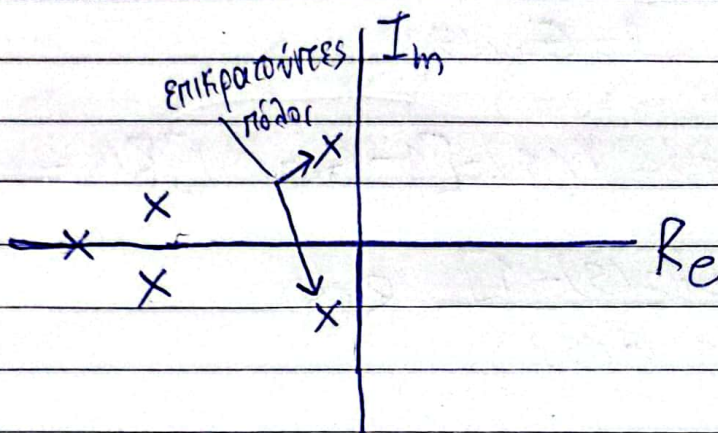 επικρατούντες
πόλοι
Im
Re